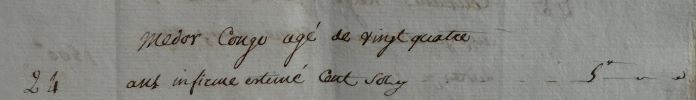 Medor Congo agé de vingt quatre
24 ans infirme estimé Cent Sols 5"